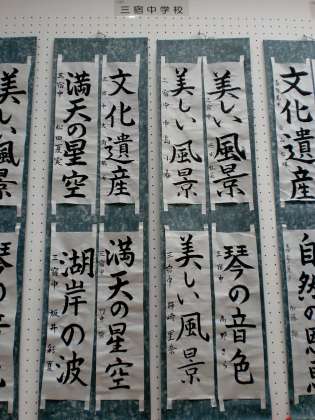 三宿中学校
文化遺産
美しい風景
美しい風景
文化遺産
満天の星空
三宿中
松田夏実
美しい風景
自然の恩恵
琴の音色
美しい風景
三宿中
満天の星空
湖岸の波
三宿中
坂井彩夏
琴の音